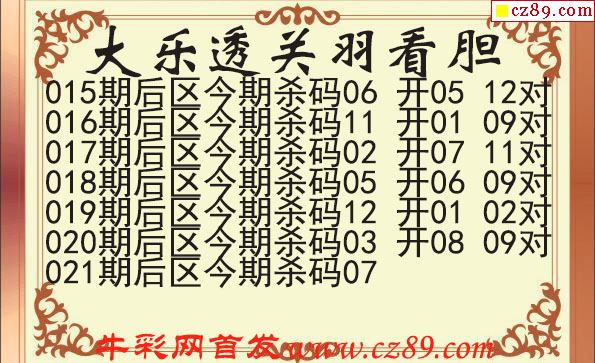 cz89.com
大乐透关羽看胆
015期后区今期杀码06 开05 12对
016期后区今期杀码11 开01 09对
017期后区今期杀码02 开07 11对
018期后区今期杀码05 开06 09对
019期后区今期杀码12 开01 02对
020期后区今期杀码03 开08 09对
021期后区今期杀码07
牛彩网首发www.cz89.com